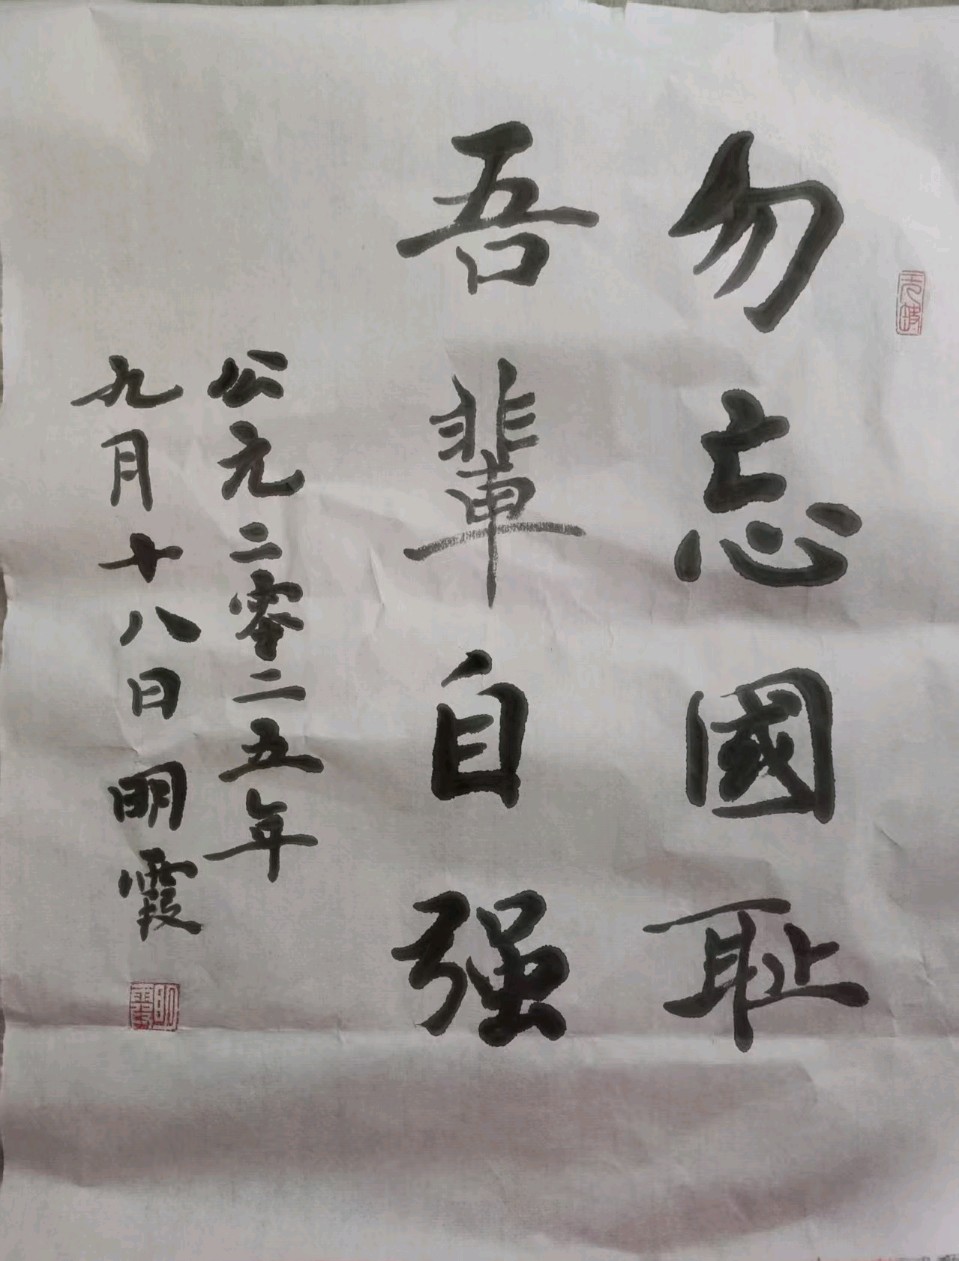 勿忘國耻
吾輩自强
公元二零二五年
九月十八日明霞